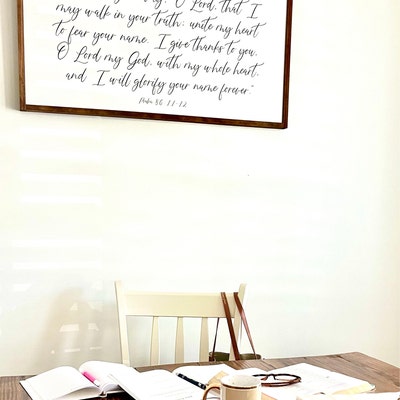 O Lord, that I
may walk in your truth; unite my heart
to fear your name. I give thanks to you,
O Lord my God, with my whole heart,
and I will glorify your name forever."
Psalm 86:11-12